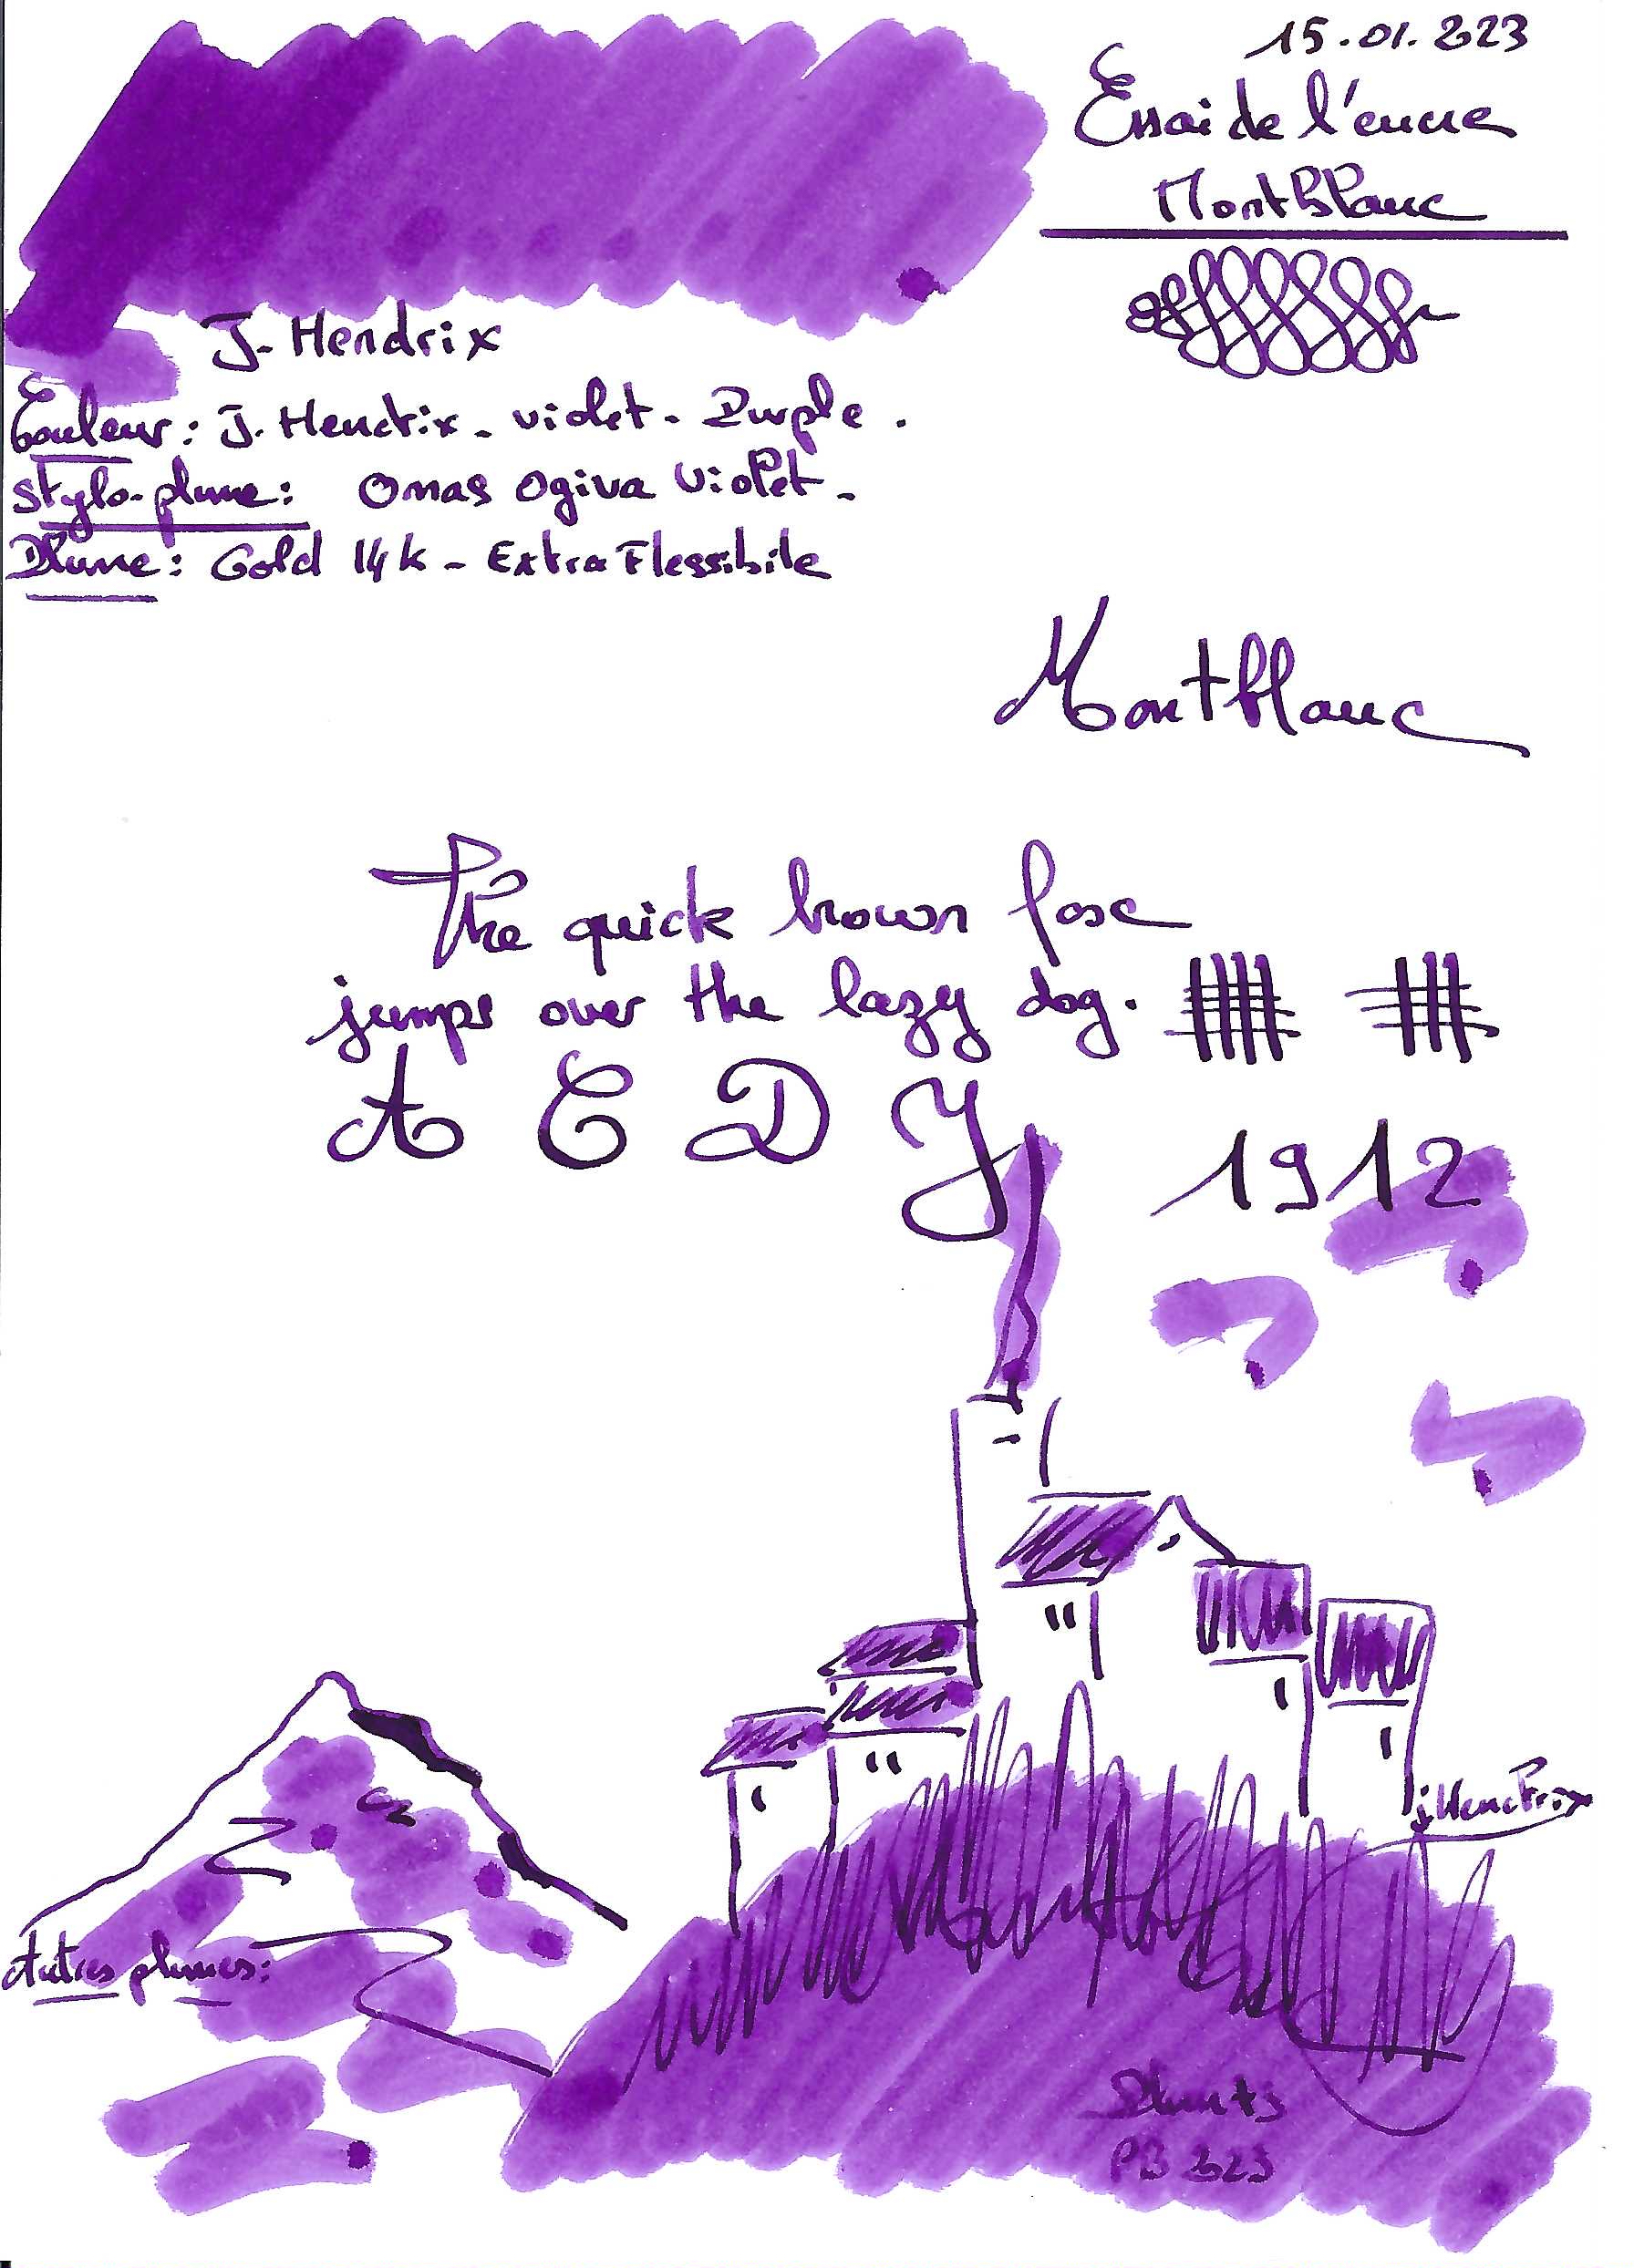 15.01.223
Essai de l'encre
MontBlanc
J. Hendrix
Couleur: J. Hendrix - violet - Purple.
Stylo-plume: Omas Ogiva Violet -
Plume: Gold 14k - Extra Flessibile
Montblanc
The quick brown fox
jumps over the lazy dog.
A C D J 1912
j Hendrix
Autres plumes:
Montblanc
PB 223